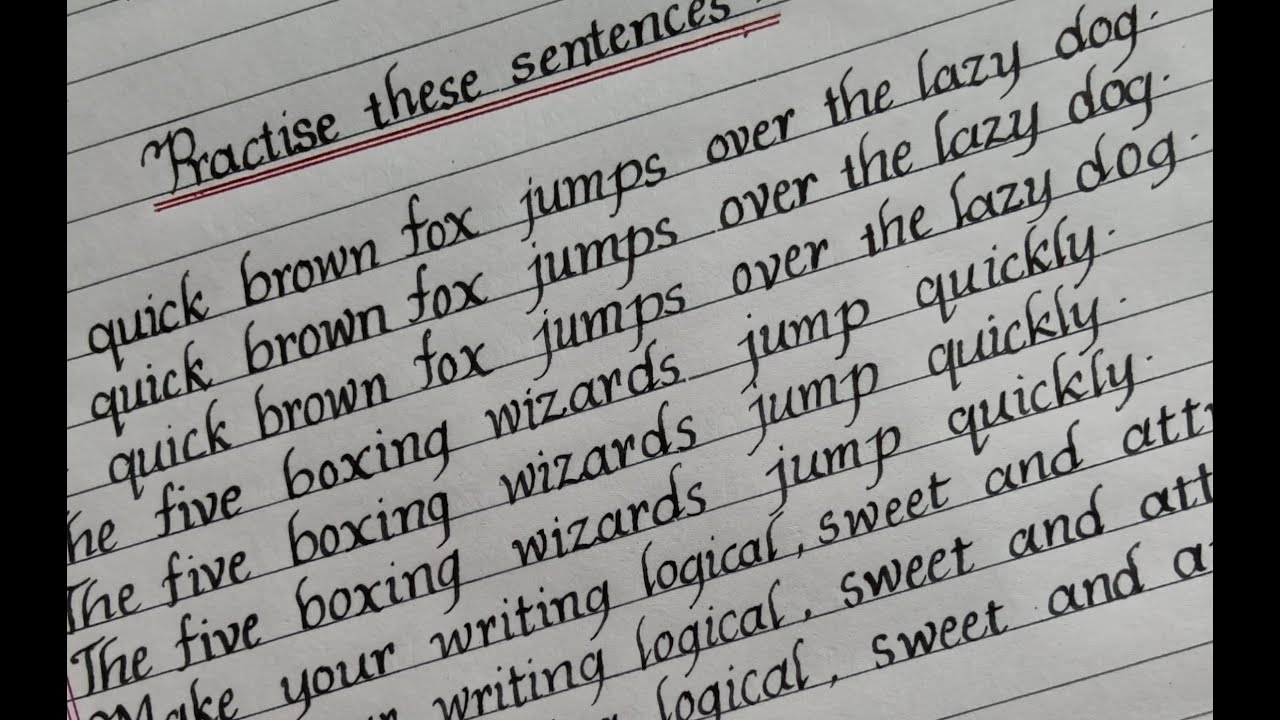 Practise these sentences
quick brown fox jumps over the lazy dog.
quick brown fox jumps over the lazy dog.
quick brown fox jumps over the lazy dog.
The five boxing wizards jump quickly.
The five boxing wizards jump quickly.
The five boxing wizards jump quickly.
Make your writing logical, sweet and
writing logical, sweet and
logical, sweet and